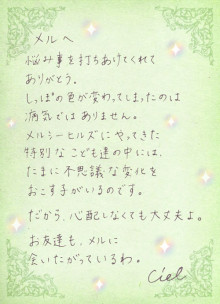 メルへ
悩み事を打ちあけてくれて
ありがとう。
しっぽの色が変わってしまったのは
病気ではありません。
メルシーヒルズにやってきた
特別なこども達の中には、
たまに不思議な変化を
おこす子がいるのです。
だから、心配しなくても大丈夫よ。
お友達も、メルに
会いたがっているわ。
Ciel